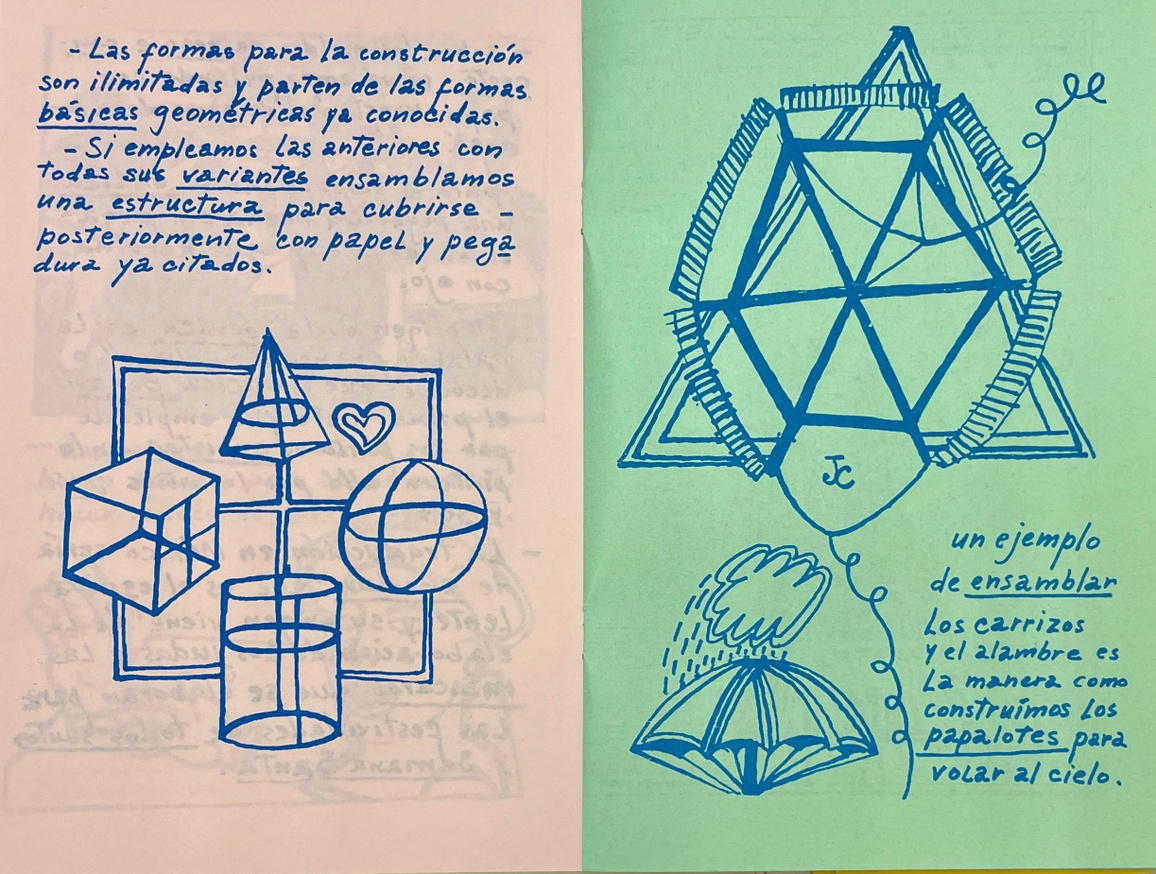 - Las formas para la construcción
son ilimitadas y parten de las formas
básicas geométricas ya conocidas.
- Si empleamos las anteriores con
todas sus variantes ensamblamos
una estructura para cubrirse -
posteriormente con papel y pega
dura ya citados.
JC
un ejemplo
de ensamblar
Los carrizos
y el alambre es
La manera como
construímos Los
papalotes para
volar al cielo.